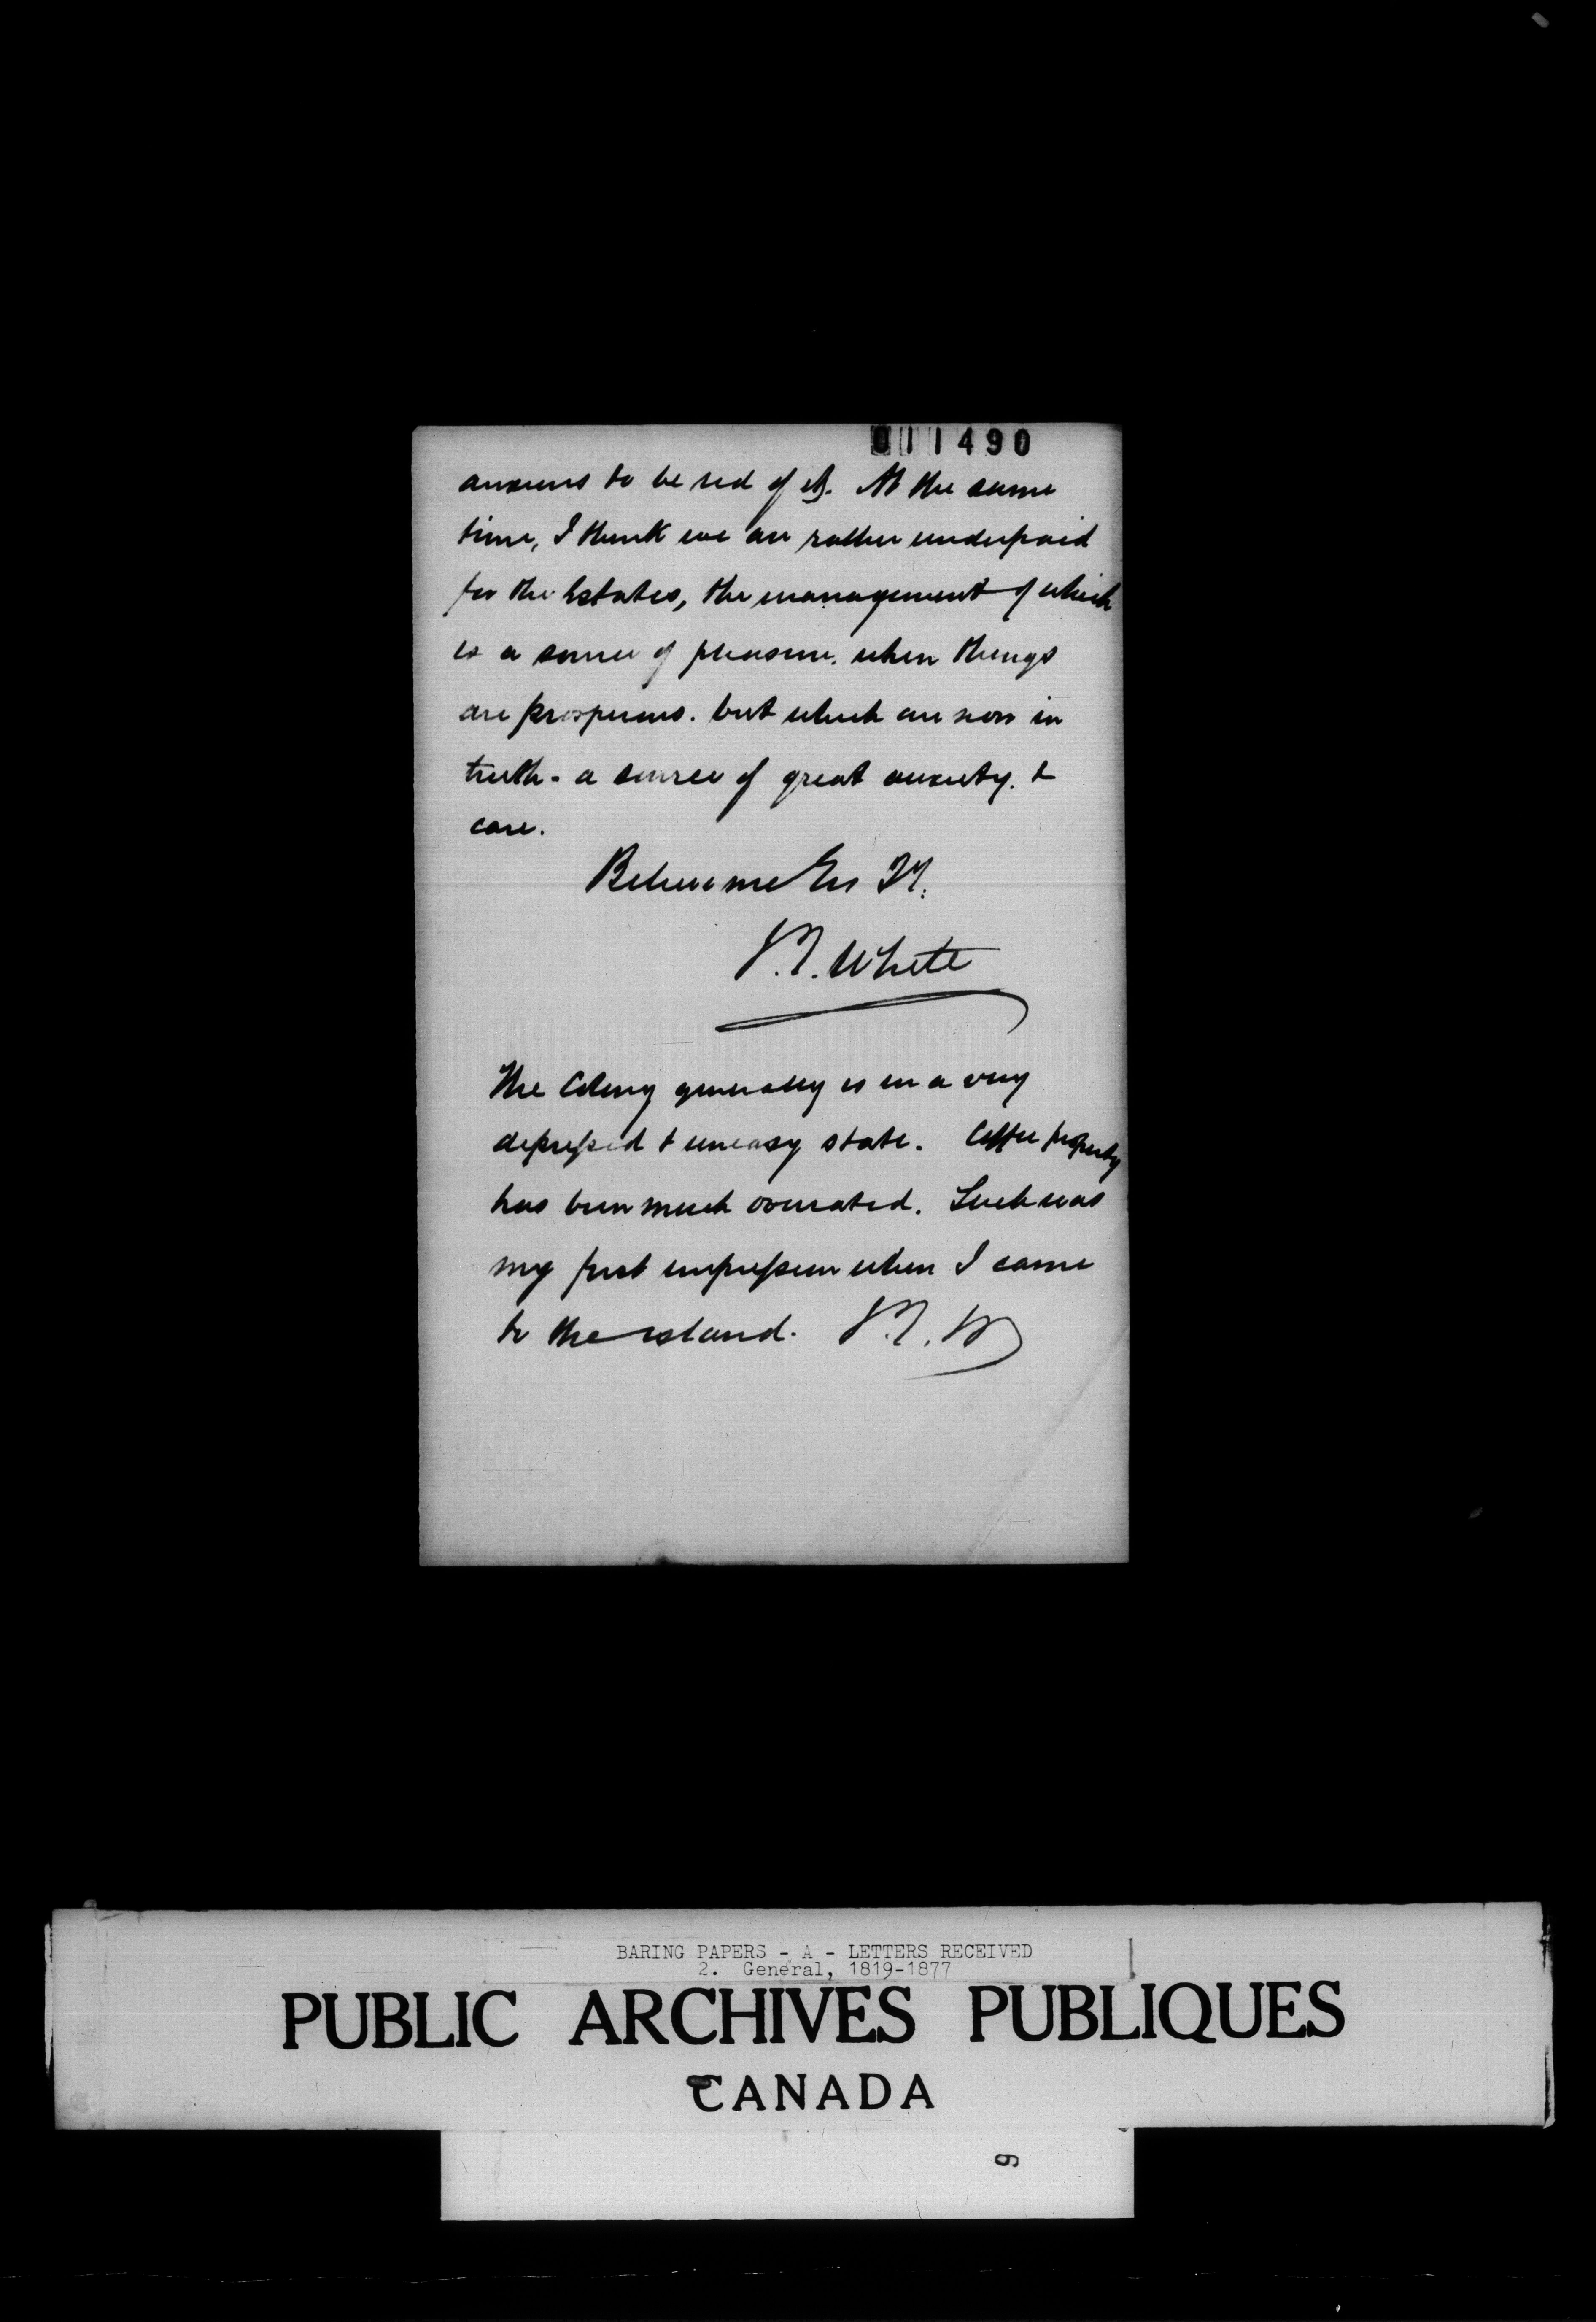 011490
anxious to be rid of it. At the same
time, I think we are rather underpaid
for the Estates, the management of which
is a source of pleasure, when things
are prosperous. but which are now in
truth - a source of great anxiety. &
care.
Believe me
White
The Colony generally is in a very
depressed & uneasy state. Coffee property
has been much overrated. Such was
my first impression when I came
to the island.
BARING PAPERS - A - LETTERS RECEIVED
2. General, 1819-1877
PUBLIC ARCHIVES PUBLIQUES
CANADA
9